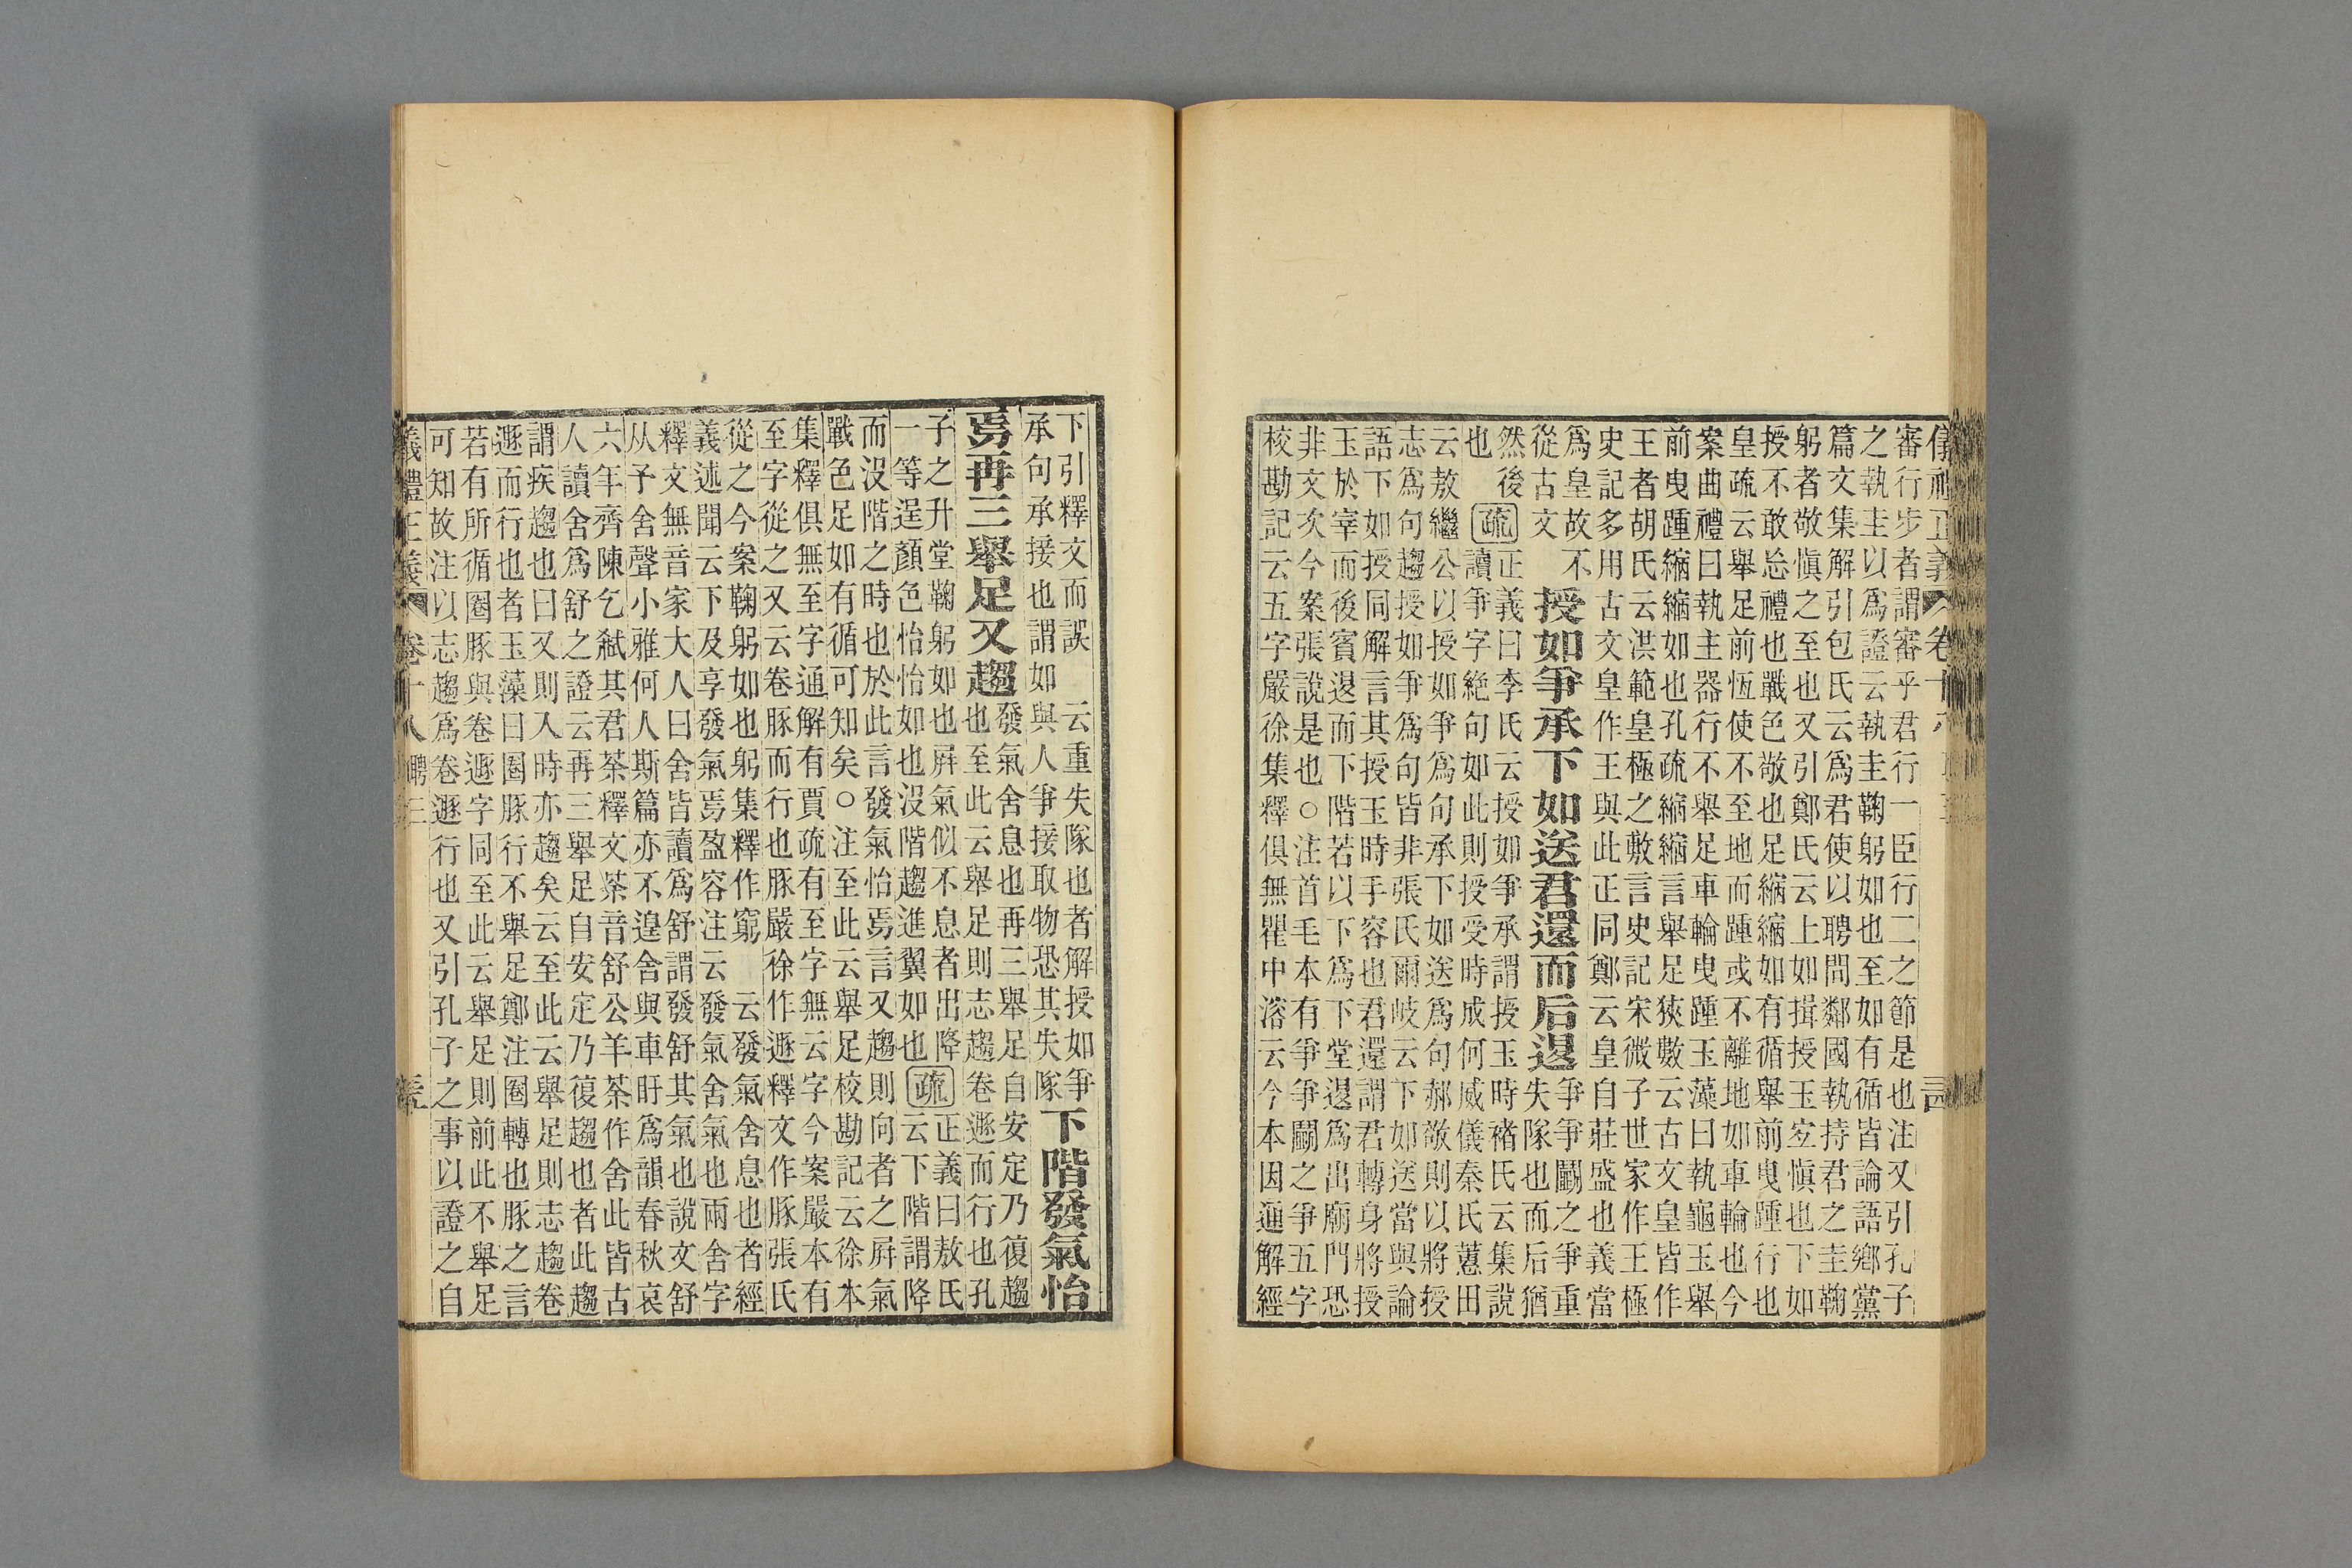 審行步者謂審乎君行一臣行二之節是也注又引孔子
之執圭以爲證云執圭鞠躬如也至如有循皆論語鄉黨
篇文集解引包氏云爲君使以聘問鄰國執持君之圭鞠
躬者敬愼之至也又引鄭氏云上如揖授玉宜愼也下如
授不敢忘禮也戰色敬也足縮縮如有循舉前曳踵行也
皇疏云舉足前恆使不至地而踵或不離地如車輪也今
案曲禮曰執主器行不舉足車輪曳踵玉藻曰執龜玉舉
前曳踵縮縮如也孔疏縮縮言舉足狹數云古文皇皆作
王者胡氏云洪範皇極之敷言史記宋微子世家作王極
史記多用古文皇作王與此正同鄭云皇自莊盛也義當
爲皇故不
從古文
授如爭承下如送君還而后退
爭爭鬭之爭重
失隊也而后猶
然後
也
疏
正義曰李氏云授如爭承謂授玉時褚氏云集說
讀爭字絶句如此則授受時成何威儀秦氏蕙田
云敖繼公以授如爭爲句承下如送爲句郝敬則以將授
志爲句趨授如爭爲句皆非張氏爾岐云下如送當與論
語下如授同解言其授玉時手容也君還謂君轉身將授
玉於宰而後賓退而下階若以下爲下堂退爲出廟門恐
非文次今案張說是也○注首毛本有爭爭鬭之爭五字
校勘記云五字嚴徐集釋俱無瞿中溶云今本因通解經
下引釋文而誤　云重失隊也者解授如爭
承句承接也謂如與人爭接取物恐其失隊
下階發氣怡
焉再三舉足又趨
發氣舍息也再三舉足自安定乃復趨
也至此云舉足則志趨卷遯而行也孔
子之升堂鞠躬如也屏氣似不息者出降
一等逞顏色怡怡如也沒階趨進翼如也
疏
正義曰敖氏
云下階謂降
而沒階之時也於此言發氣怡焉言又趨則向者之屏氣
戰色足如有循可知矣○注至此云舉足校勘記云徐本
集釋俱無至字通解有賈疏有至字無云字今案嚴本有
至字從之又云卷豚而行也豚嚴徐作遯釋文作豚張氏
從之今案鞠躬如也躬集釋作窮　云發氣舍息也者經
義述聞云下及享發氣焉盈容注云發氣舍氣也兩舍字
釋文無音家大人曰舍皆讀爲舒謂發舒其氣也說文舒
从予舍聲小雅何人斯篇亦不遑舍與車盱爲韻春秋哀
六年齊陳乞弑其君荼釋文荼音舒公羊荼作舍此皆古
人讀舍爲舒之證云再三舉足自安定乃復趨也者此趨
謂疾趨也曰又則入時亦趨矣云至此云舉足則志趨卷
遯而行也者玉藻曰圈豚行不舉足鄭注圈轉也豚之言
若有所循圈豚與卷遯字同至此云舉足則前此不舉足
可知故注以志趨爲卷遯行也又引孔子之事以證之自
儀禮正義 卷十八 聘三